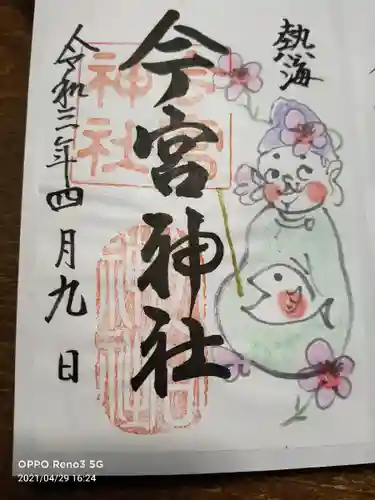 熱海
今宮神社
令和三年四月九日
今宮
神社
OPPO Reno3 5G
2021/04/29 16:24